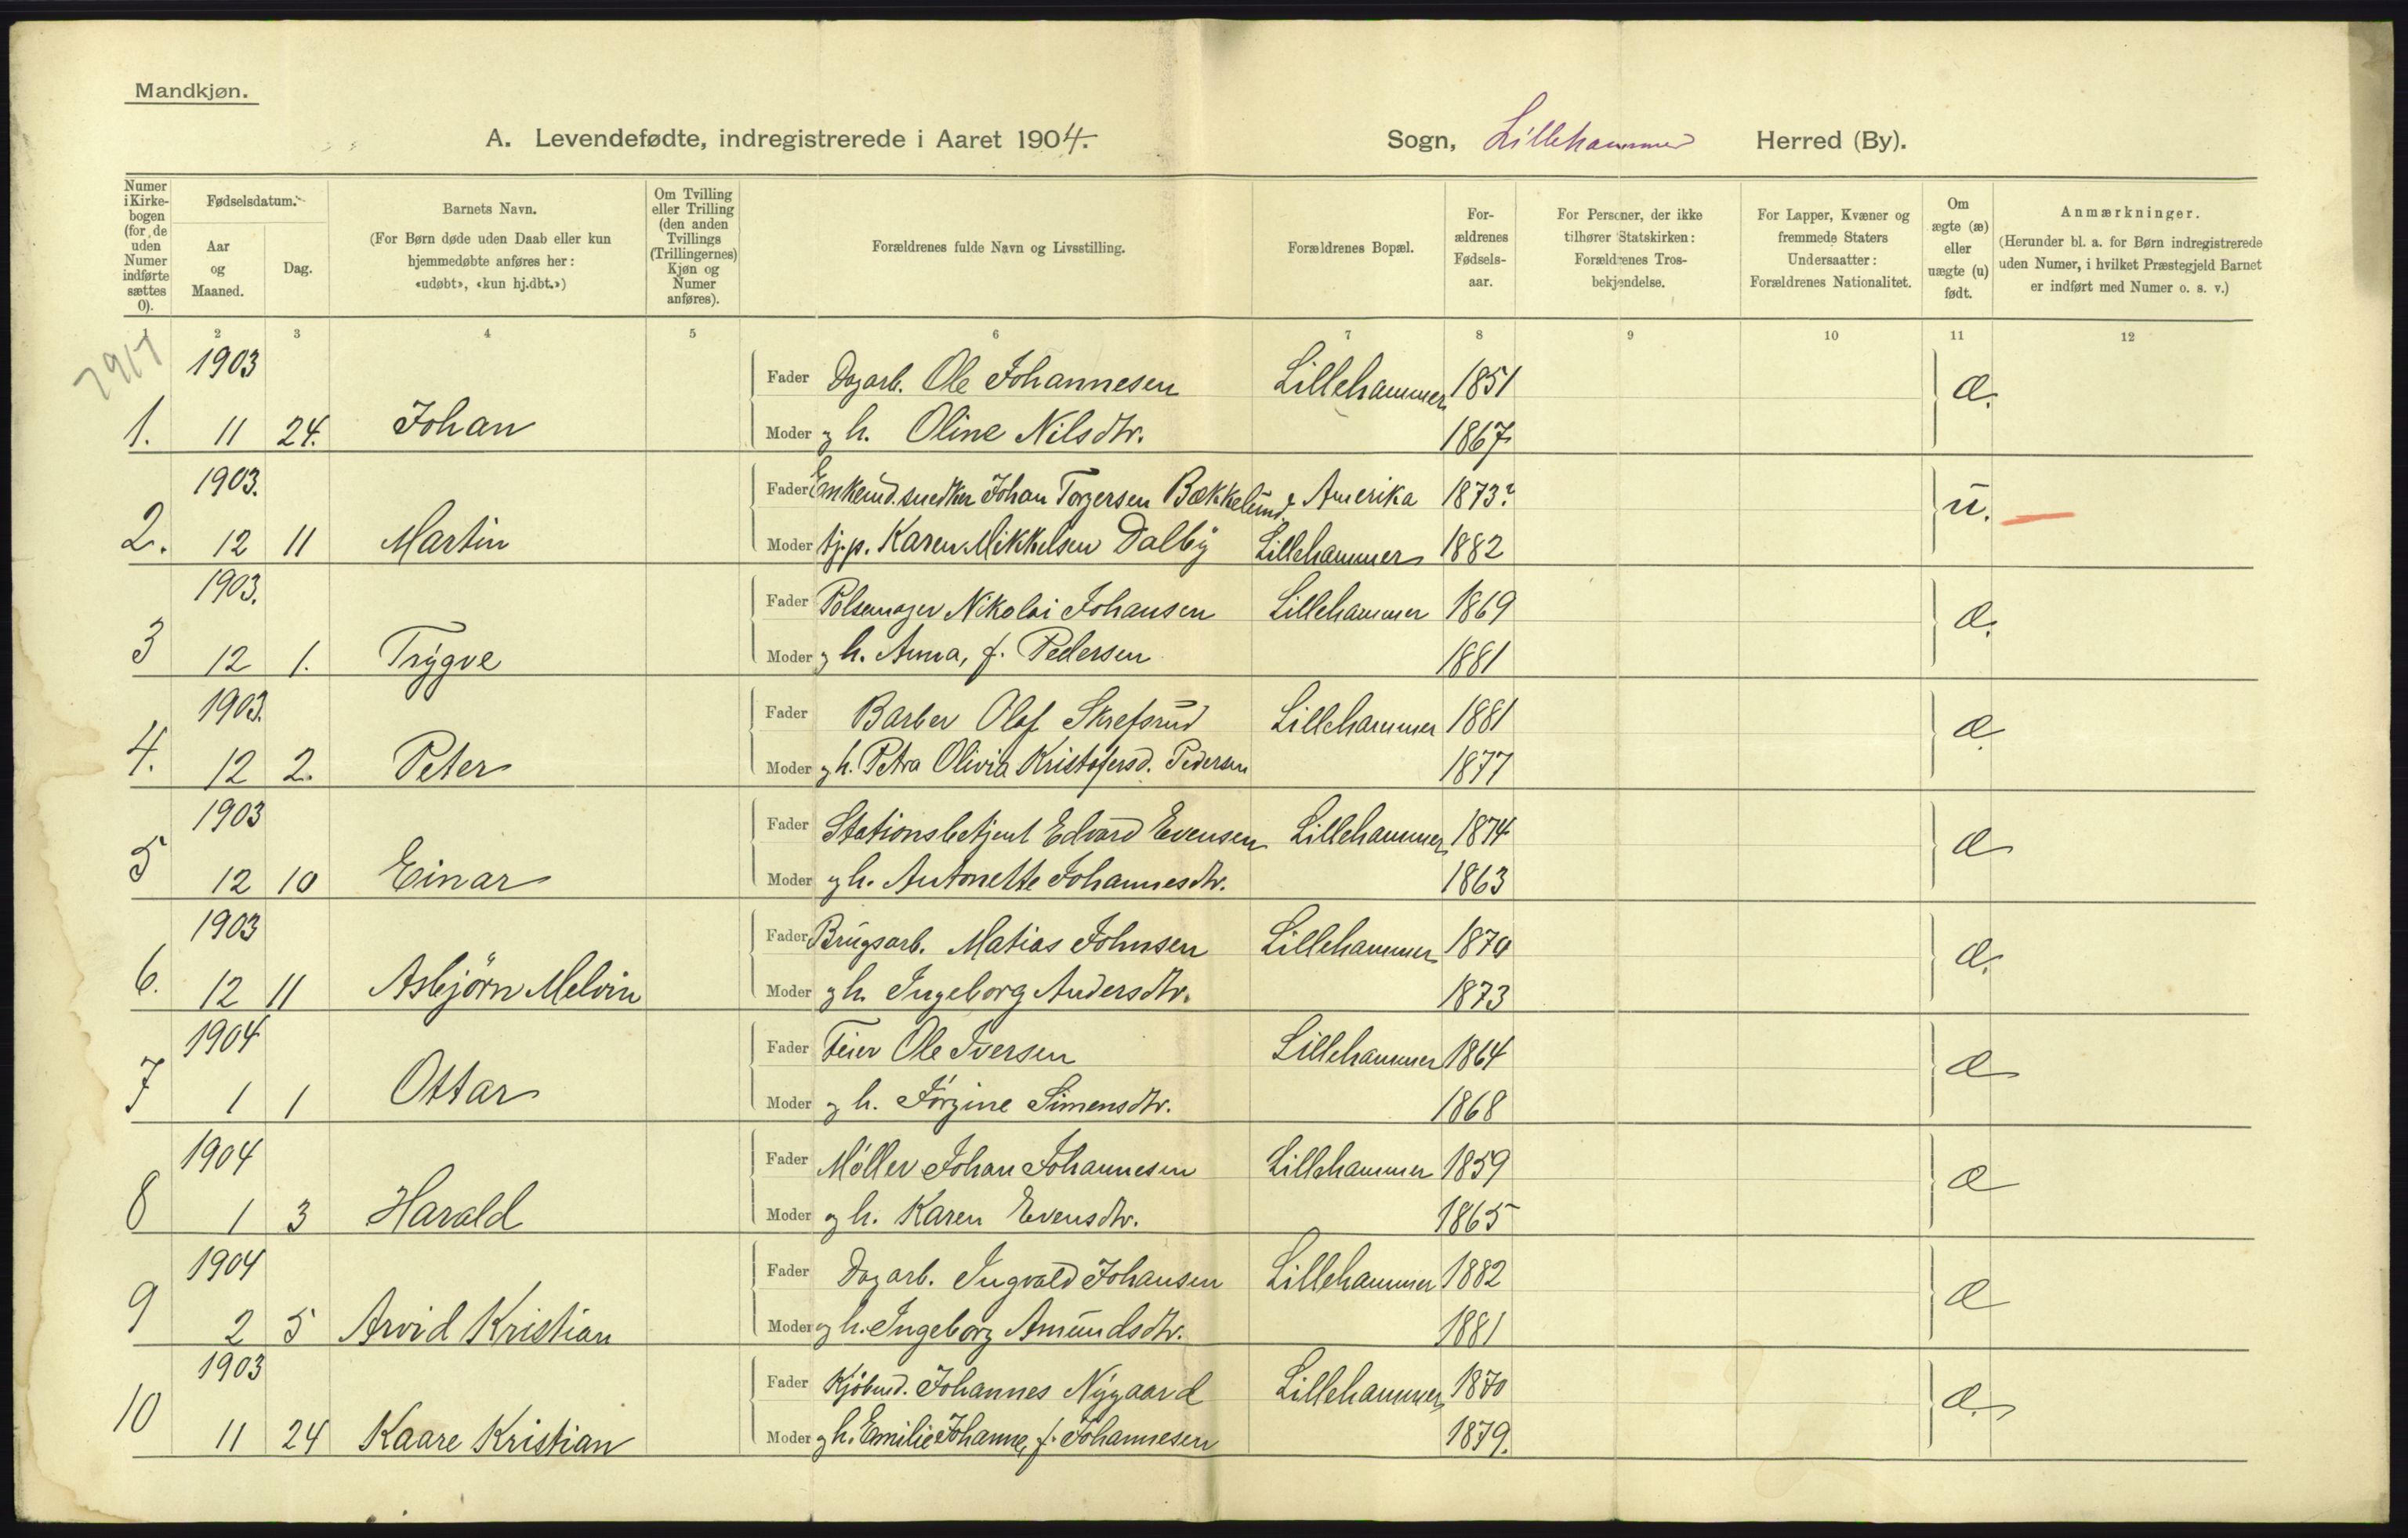 Mandkjøn.
A. Levendefødte, indregistrerede i Aaret 1904. Sogn, Lillehammer Herred (By).
Numer i Kirke-bogen (for de uden Numer indførte sættes 0).
Fødselsdatum.
Aar og Maaned.
Dag.
Barnets Navn.
(For Børn døde uden Daab eller kun hjemmedøbte anføres her: «udøbt», «kun hj.dbt.»)
Om Tvilling eller Trilling (den anden Tvillings (Trillingernes) Kjøn og Numer anføres).
Forældrenes fulde Navn og Livsstilling.
Forældrenes Bopæl.
For-ældrenes Fødsels-aar.
For Personer, der ikke tilhører Statskirken: Forældrenes Tros-bekjendelse.
For Lapper, Kvæner og fremmede Staters Undersaatter: Forældrenes Nationalitet.
Om ægte (æ) eller uægte (u) født.
Anmærkninger.
(Herunder bl. a. for Børn indregistrerede uden Numer, i hvilket Præstegjeld Barnet er indført med Numer o. s. v.)
1 2 3 4 5 6 7 8 9 10 11 12
1903 Fader Dagarb. Ole Johannesen Lillehammer 1851 æ.
1. 11 24. Johan Moder og h. Oline Nilsdtr. 1867
1903. Fader Enkemd. snedker Johan Torgersen Bækkelund, Amerika 1873? u.
2. 12 11 Martin Moder tj.p. Karen Mikkelsen Dalby Lillehammer 1882
1903. Fader Pølsemager Nikolai Johansen Lillehammer 1869 æ.
3 12 1. Trygve Moder og h. Anna, f. Pedersen 1881
1903. Fader Barber Olaf Skrefsrud Lillehammer 1881 æ
4. 12 2. Peter Moder og h. Petra Olivia Kristofersd. Pedersen 1877
1903 Fader Stationsbetjent Edvard Evensen Lillehammer 1874 æ
5 12 10 Einar Moder og h. Antonette Johannesdtr. 1863
1903 Fader Brugsarb. Matias Johnsen Lillehammer 1870 æ.
6. 12 11 Asbjörn Melvin Moder og h. Ingeborg Andersdtr. 1873
1904 Fader Feier Ole Iversen Lillehammer 1864 æ
7 1 1 Ottar Moder og h. Jörgine Simensdtr. 1868
1904 Fader Møller Johan Johannesen Lillehammer 1859 æ
8 1 3 Harald Moder og h. Karen Evensdtr. 1865
1904 Fader Dagarb. Ingvald Johansen Lillehammer 1882 æ
9 2 5 Arvid Kristian Moder og h. Ingeborg Amundsdtr. 1881
1903 Fader Kjøbmd. Johannes Nygaard Lillehammer 1870 æ.
10 11 24 Kaare Kristian Moder og h. Emilie Johanne, f. Johannesen 1879.